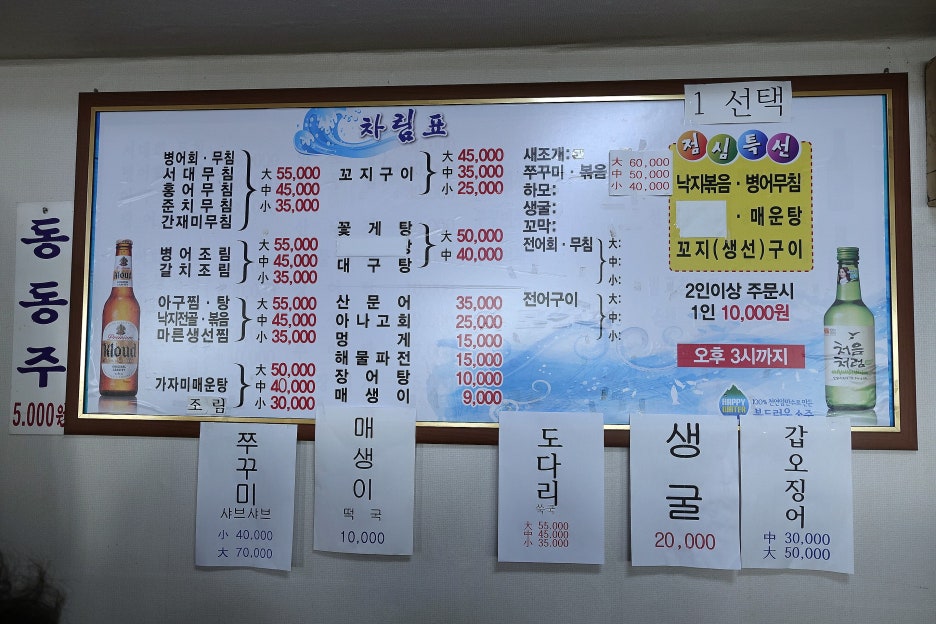 1 선택
차림표
병어회·무침
서대무침
홍어무침
준치무침
간재미무침
大 55,000
中 45,000
小 35,000
병어조림
갈치조림
大 55,000
中 45,000
小 35,000
아구찜·탕
낙지전골·볶음
마른생선찜
大 55,000
中 45,000
小 35,000
가자미매운탕
조림
大 50,000
中 40,000
小 30,000
꼬지구이
大 45,000
中 35,000
小 25,000
꽃게탕
탕
대구탕
大 50,000
中 40,000
산문어 35,000
아나고회 25,000
멍게 15,000
해물파전 15,000
장어탕 10,000
매생이 9,000
새조개:
쭈꾸미·볶음
하모:
생굴:
꼬막:
大 60,000
中 50,000
小 40,000
전어회·무침
大:
中:
小:
전어구이
大:
中:
小:
점심특선
낙지볶음·병어무침
·매운탕
꼬지(생선)구이
2인이상 주문시
1인 10,000원
오후 3시까지
Kloud
처음처럼
HAPPY WATER
부드러운 소주
동동주
5.000원
쭈꾸미
샤브샤브
小 40,000
大 70,000
매생이
떡국
10,000
도다리
쑥국
大 55.000
中 45.000
小 35.000
생굴
20,000
갑오징어
中 30,000
大 50,000